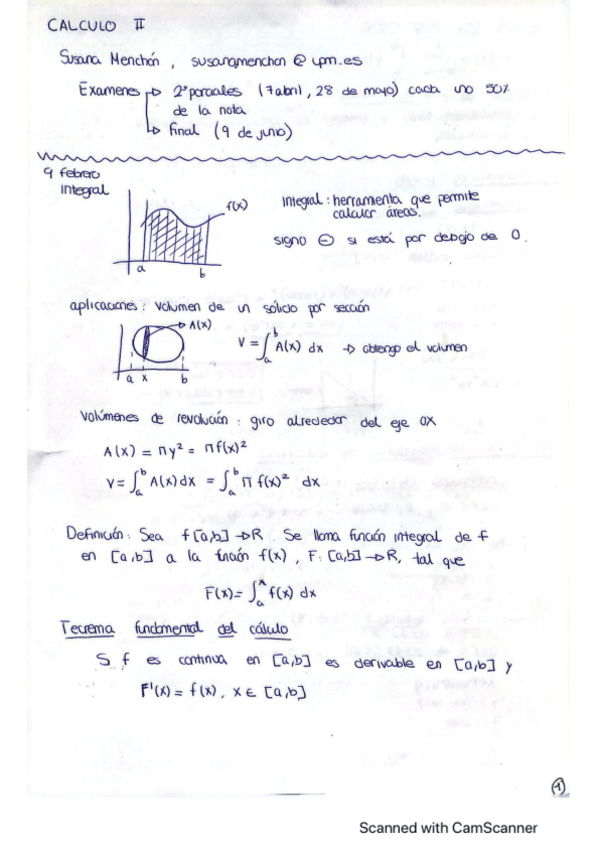 CALCULO II
Susana Menchón, susanamenchon@upm.es
Examenes → 2 parciales (7 abril, 28 de mayo) cada uno 50%
de la nota
↳ final (9 de junio)
9 febrero
integral
f(x)
a b
integral: herramienta que permite
calcular áreas.
signo ⊖ si está por debajo de 0.
aplicaciones: volumen de un sólido por sección
A(x)
a x b
V = ∫_a^b A(x) dx → obtengo el volumen
Volúmenes de revolución: giro alrededor del eje OX
A(x) = πy² = πf(x)²
V = ∫_a^b A(x) dx = ∫_a^b π f(x)² dx
Definición: Sea f [a,b] → R. Se llama función integral de f
en [a,b] a la función f(x), F: [a,b] → R, tal que
F(x) = ∫_a^x f(x) dx
Teorema fundamental del cálculo
S f es continua en [a,b] es derivable en [a,b] y
F'(x) = f(x), x ∈ [a,b]
1
Scanned with CamScanner